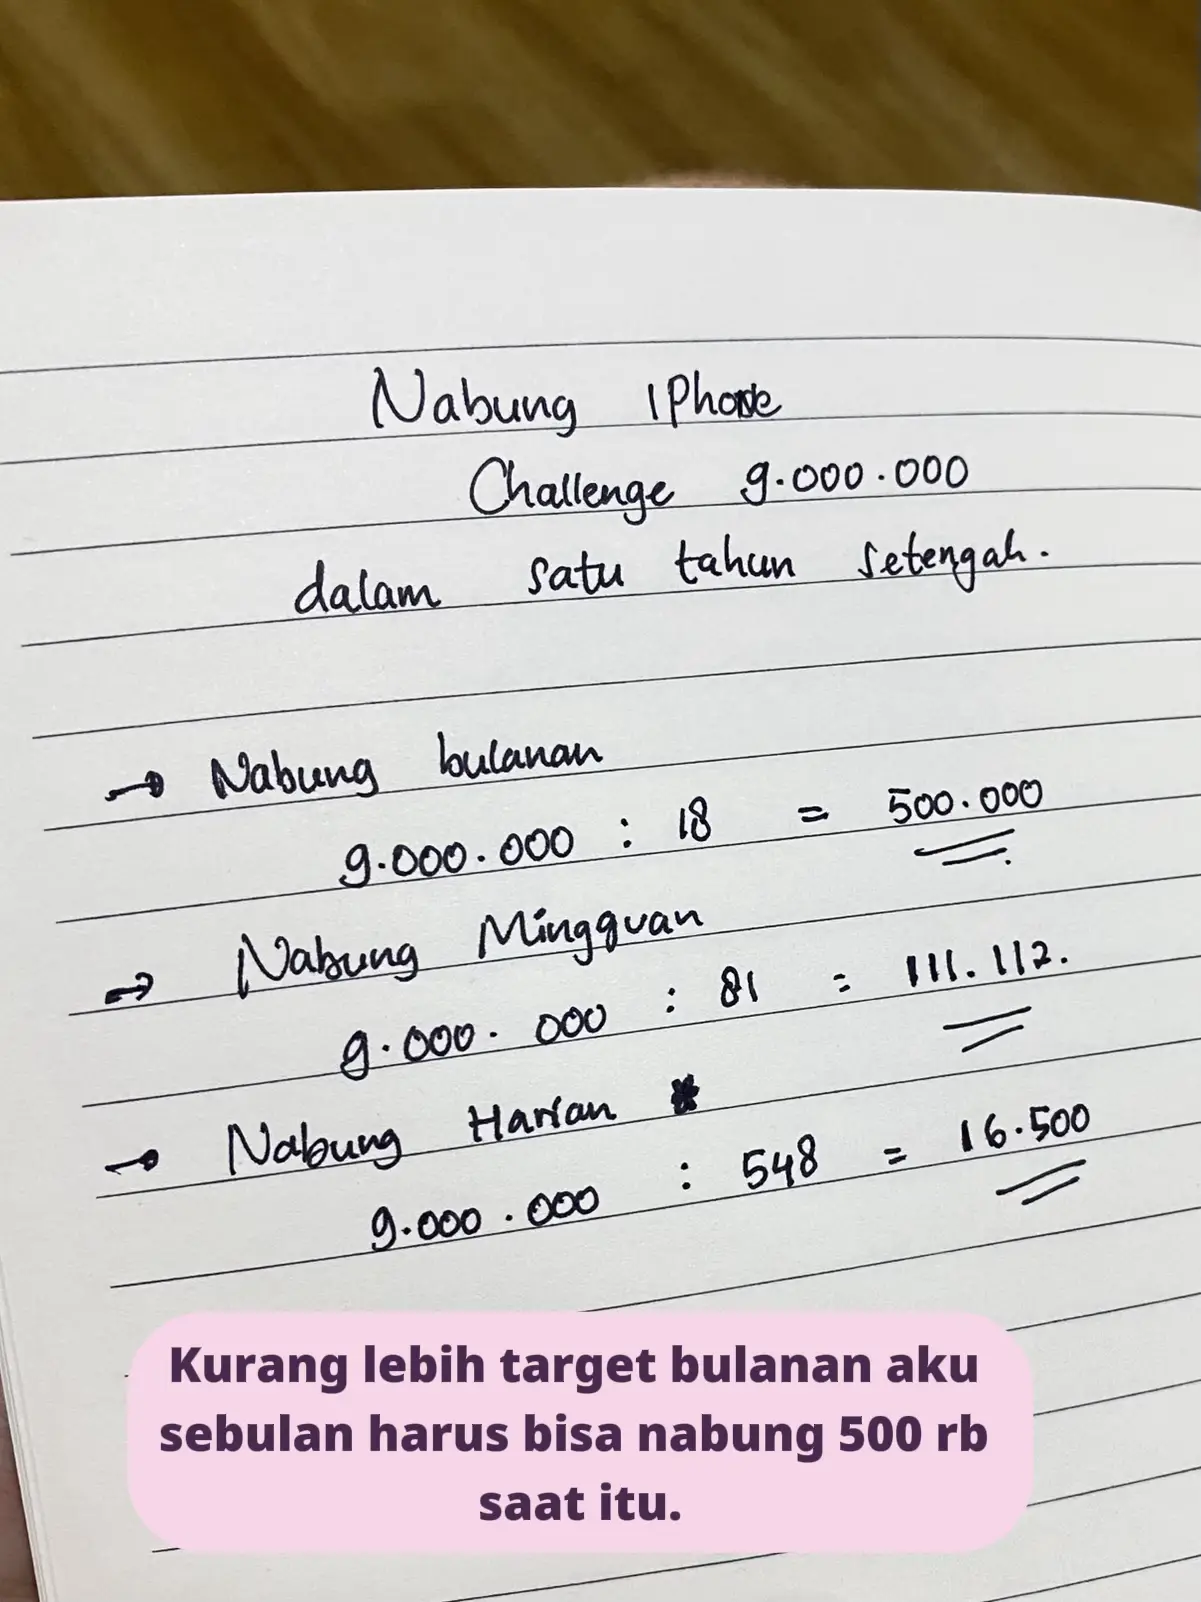 Nabung IPhone
Challenge 9.000.000
dalam satu tahun setengah.
→ Nabung bulanan
9.000.000 : 18 = 500.000
→ Nabung Mingguan
9.000.000 : 81 = 111.112.
→ Nabung Harian *
9.000.000 : 548 = 16.500
Kurang lebih target bulanan aku
sebulan harus bisa nabung 500 rb
saat itu.